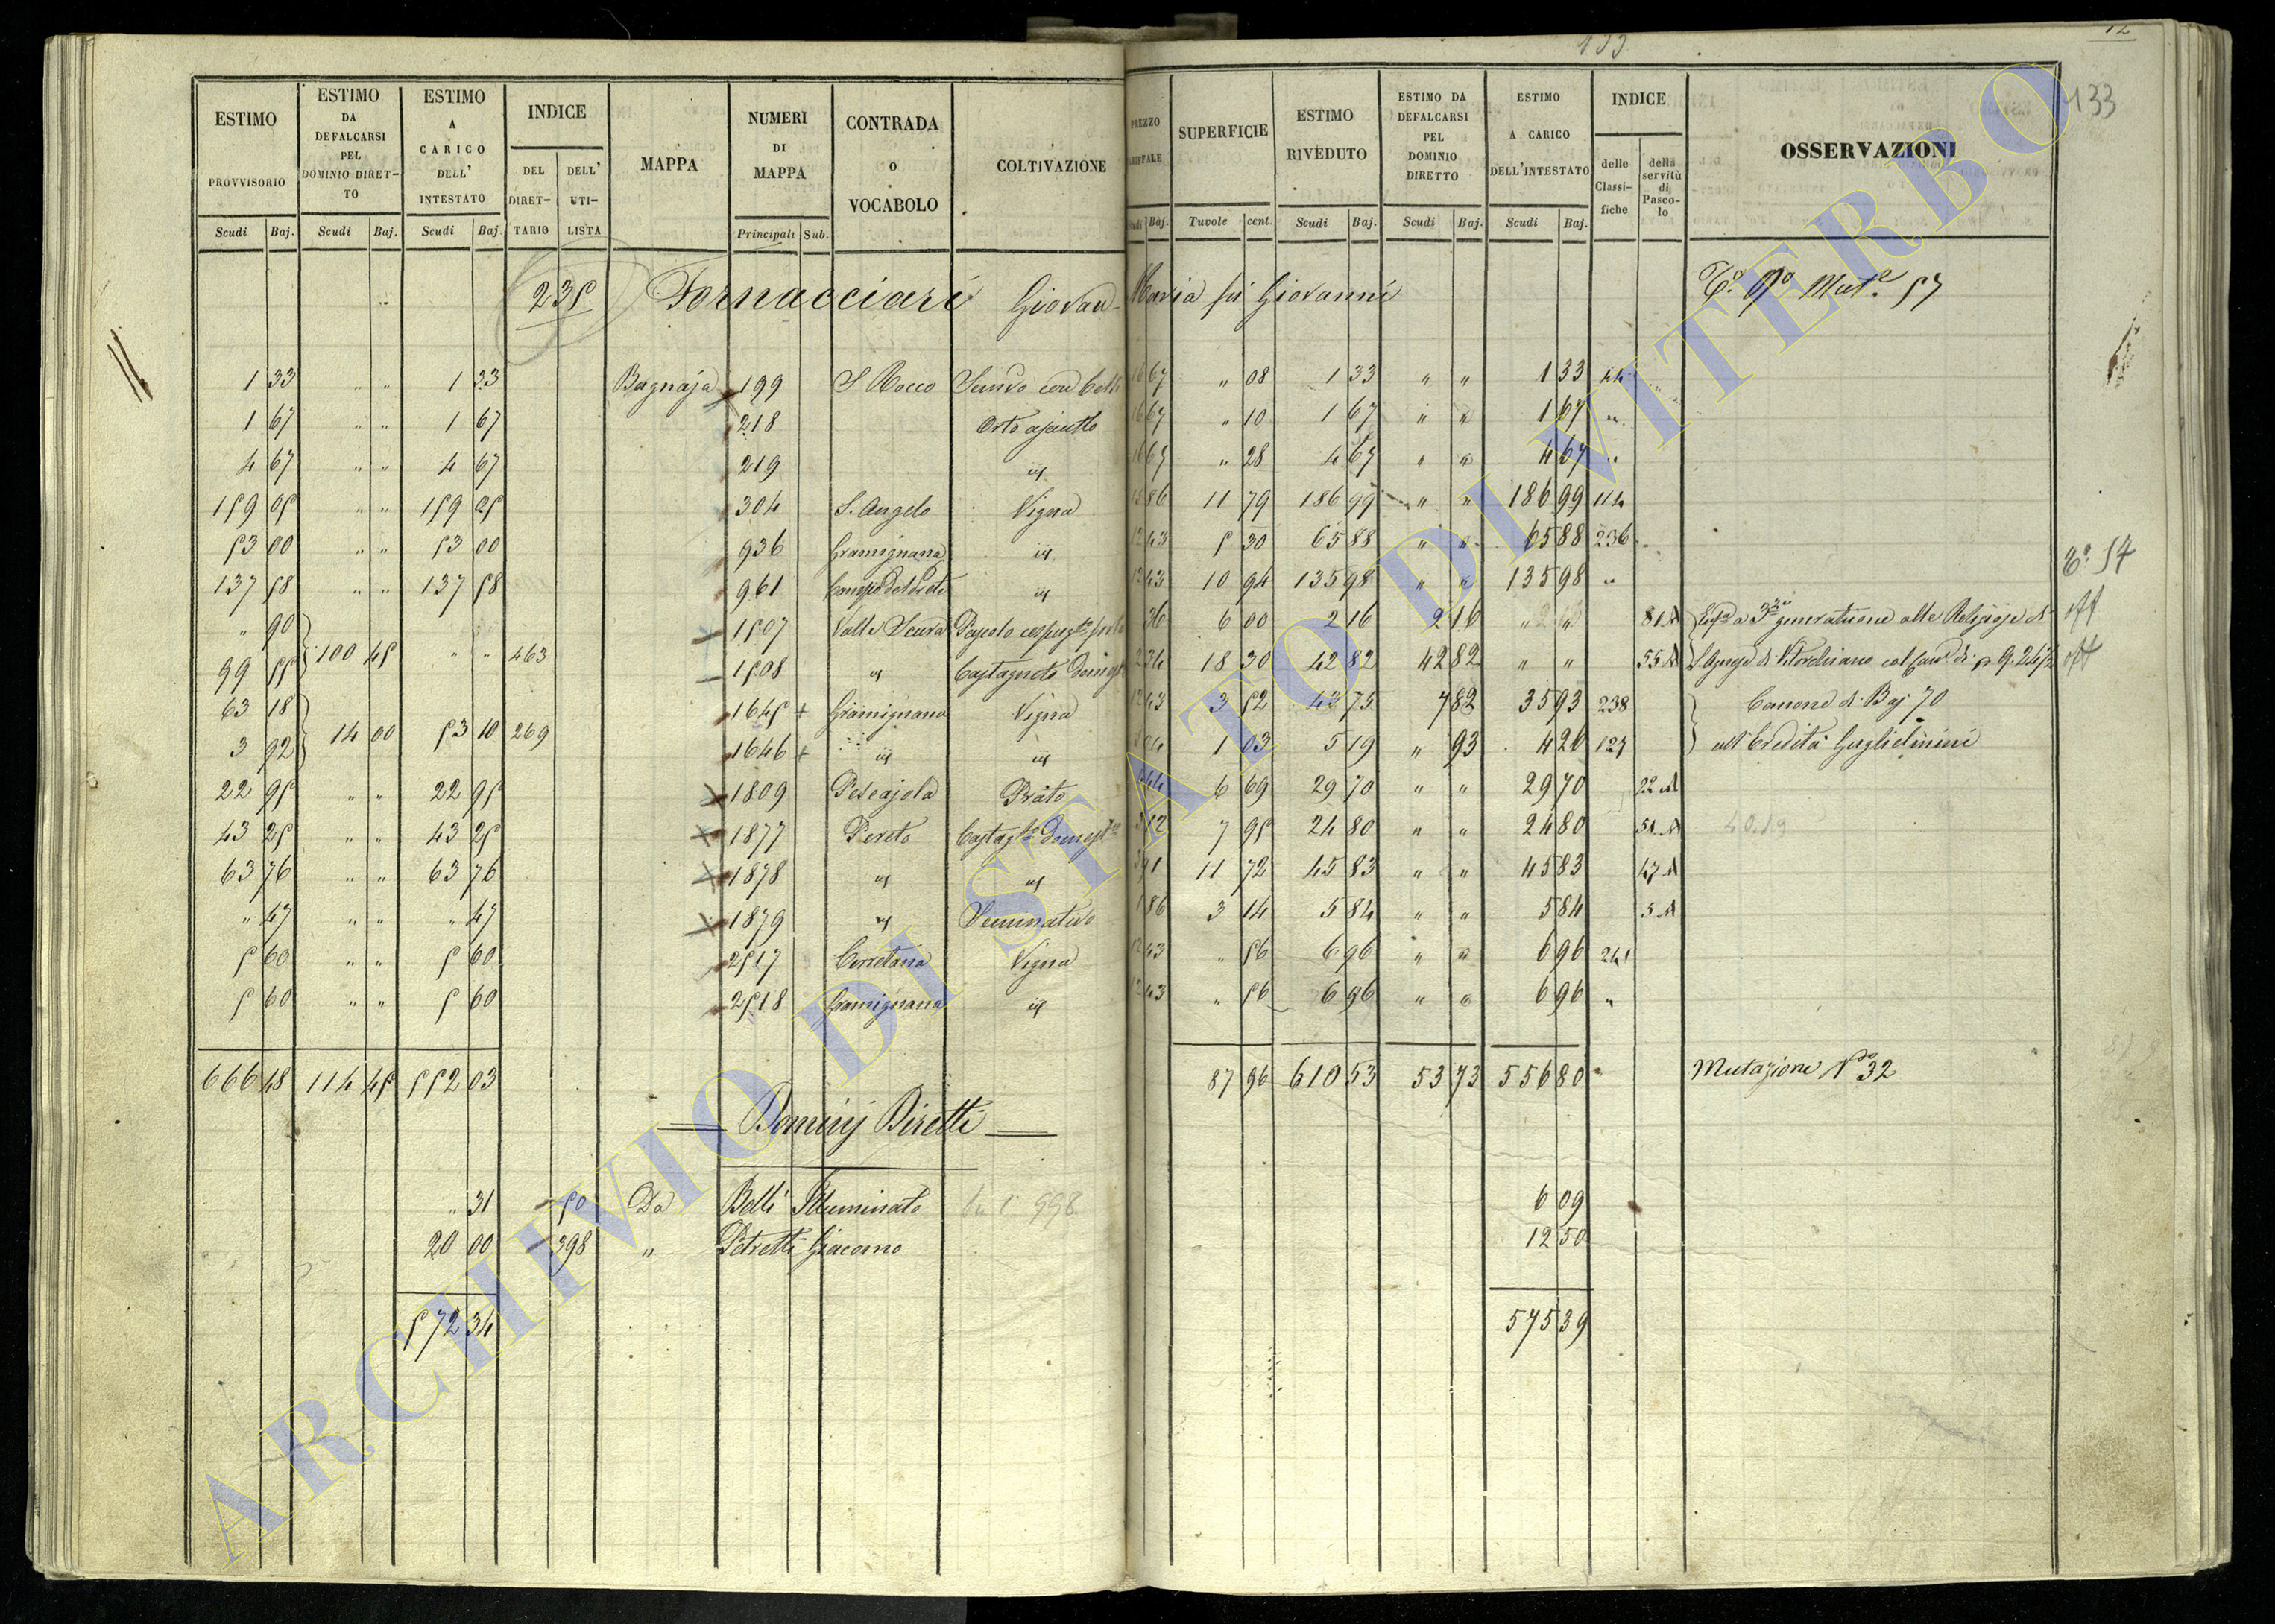 133
12
133
ESTIMO PROVVISORIO | ESTIMO DA DEFALCARSI PEL DOMINIO DIRETTO | ESTIMO A CARICO DELL' INTESTATO | INDICE DEL DIRETTARIO | DELL' UTILISTA | MAPPA | NUMERI DI MAPPA | CONTRADA o VOCABOLO | COLTIVAZIONE | PREZZO | SUPERFICIE | ESTIMO RIVEDUTO | ESTIMO DA DEFALCARSI PEL DOMINIO DIRETTO | ESTIMO A CARICO DELL'INTESTATO | INDICE delle Classifiche | della servitù di Pascolo | OSSERVAZIONI
Scudi Baj. | Scudi Baj. | Scudi Baj. | Principali Sub. | Baj. | Tavole cent. | Scudi Baj. | Scudi Baj. | Scudi Baj.
235 Fornacciari Giovan Maria fu Giovanni Mut.e 57
1 33 | " " | 1 33 | Bagnaja | 199 | S Rocco | 67 | " 08 | 1 33 | " " | 1 33
1 67 | " " | 1 67 | 218 | Orto asciutto | 67 | " 10 | 1 67 | " " | 1 67 | "
4 67 | " " | 4 67 | 219 | id | 67 | " 28 | 4 67 | " " | 4 67 | "
159 05 | " " | 159 05 | 304 | S. Angelo | Vigna | 86 | 11 79 | 186 99 | " " | 186 99 | 114
53 00 | " " | 53 00 | 936 | Gramignana | id | 12 43 | 5 30 | 65 88 | " " | 65 88 | 236
137 58 | " " | 137 58 | 961 | id | 12 43 | 10 94 | 135 98 | " " | 135 98 | "
" 90 | 1507 | Valle Scura | Pascolo | 36 | 6 00 | 2 16 | 2 16 | " " | 81 A
99 55 | 100 45 | " " | 463 | 1508 | id | Castagneto | 2 34 | 18 30 | 42 82 | 42 82 | " " | 55 A
63 18 | 1645 + | Gramignana | Vigna | 12 43 | 3 52 | 43 75 | 7 82 | 35 93 | 238 | Canone di Baj 70
3 92 | 14 00 | 53 10 | 269 | 1646 + | id | id | 1 03 | 5 19 | " 93 | 4 26 | 127 | all'Eredità Guglielmini
22 95 | " " | 22 95 | 1809 | Pescajola | Prato | 4 44 | 6 69 | 29 70 | " " | 29 70 | 22 A
43 25 | " " | 43 25 | 1877 | Pereto | 3 12 | 7 95 | 24 80 | " " | 24 80 | 51 A
63 76 | " " | 63 76 | 1878 | id | id | 3 91 | 11 72 | 45 83 | " " | 45 83 | 47 A
" 47 | " " | " 47 | 1879 | id | Seminativo | 1 86 | 3 14 | 5 84 | " " | 5 84 | 5 A
5 60 | " " | 5 60 | 2517 | Vigna | 12 43 | " 56 | 6 96 | " " | 6 96 | 241
5 60 | " " | 5 60 | 2518 | Gramignana | id | 12 43 | " 56 | 6 96 | " " | 6 96 | "
666 48 | 114 45 | 552 03 | 87 96 | 610 53 | 53 73 | 556 80 | Mutazione N° 32
Dominj Diretti
" 31 | 50 | Da | Belli Illuminato | 6 09
20 00 | 398 | " | Petretti Giacomo | 12 50
572 34 | 575 39
ARCHIVIO DI STATO DI VITERBO